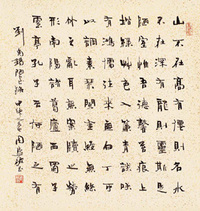 山不在高有僊則名水
不在深有龍則靈斯是
陋室惟吾德馨苔痕上
階綠草色入簾青談笑
有鴻儒往來無白丁可
以調素琴閱金經無絲
竹之亂耳無案牘之勞
形南陽諸葛廬西蜀子
雲亭孔子云何陋之有
劉禹錫陋室銘